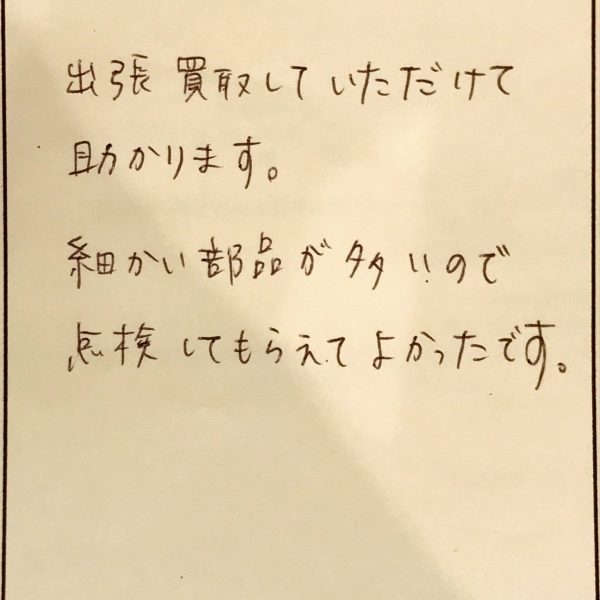 出張買取していただけて
助かります。
細かい部品が多いので
点検してもらえてよかったです。